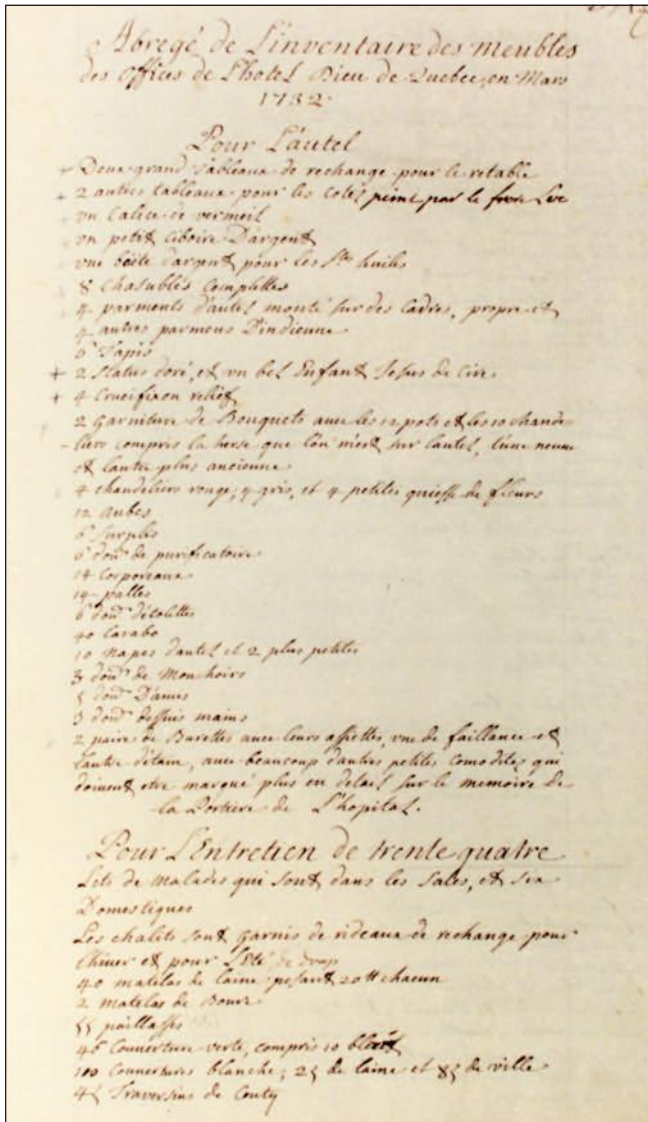 Abregé de L'inventaire des meubles
des offices de L'hotel Dieu de Quebec, en Mars
1732
Pour L'autel
+ Deux grand Tableaux de rechange pour le retable
+ 2 autres tableaux pour les cotés peint par le frere Luc
un Calice de vermeil
un petit Ciboire D'argent
une boëte d'argent pour les Stes huiles
8 Chasubles complettes
4 parments d'autel monté sur des Cadres, propre et
4 autres parmens D'indienne
6 Tapis
+ 2 Status doré, et un bel Enfant Jesus de Cire
+ 4 Crucifix en relief
2 Garniture de Bouquets avec les 12 pots et les 10 chande-
liers compris la herse que l'on met sur lautel, l'une neuve
et lautre plus ancienne
4 chandeliers rouge, 4 gris, et 4 petites de fleurs
12 Aubes
6 Surplis
6 douz de purificatoire
14 Corporeaux
14 palles
6 douz d'etolettes
40 Carabo
10 Napes dautel et 2 plus petites
3 douz de Mouchoirs
5 douz D'amis
3 douz dessuis mains
2 paire de Burettes avec leurs assiettes, une de faillance et
Lautre d'étain, avec beaucoup dautres petites comoditez qui
doivent etre marqué plus en detail sur le memoire de
la Portiere de L'hopital.
Pour L'Entretien de trente quatre
Lits de Malades qui sont dans les Sales, et six
Domestiques
Les chalits sont Garnis de rideaux de rechange pour
L'hiver et pour L'Eté de drap
40 matelas de laine pesant 20 ₶ chacun
2 matelas de Boure
55 paillasses
46 Couverture verte, compris 10 bleüe
100 Couvertures blanche; 25 de laine et 85 de ville
45 Traversins de Couty